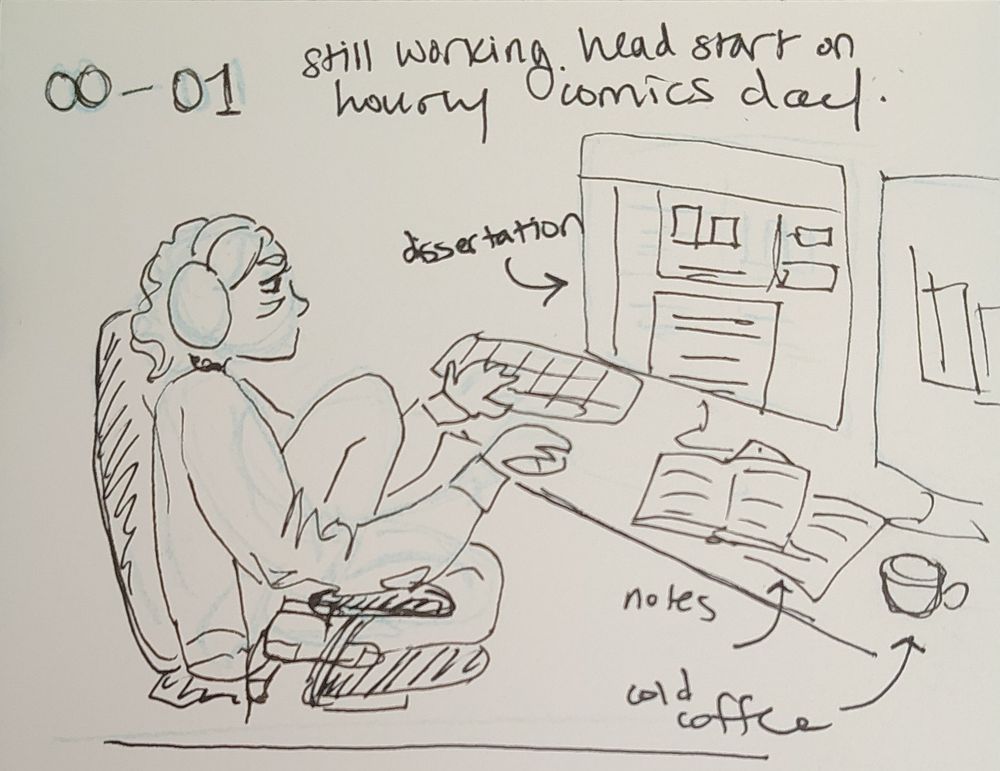 00-01
still working. head start on
hourly comics day.
dissertation
notes
cold
coffee